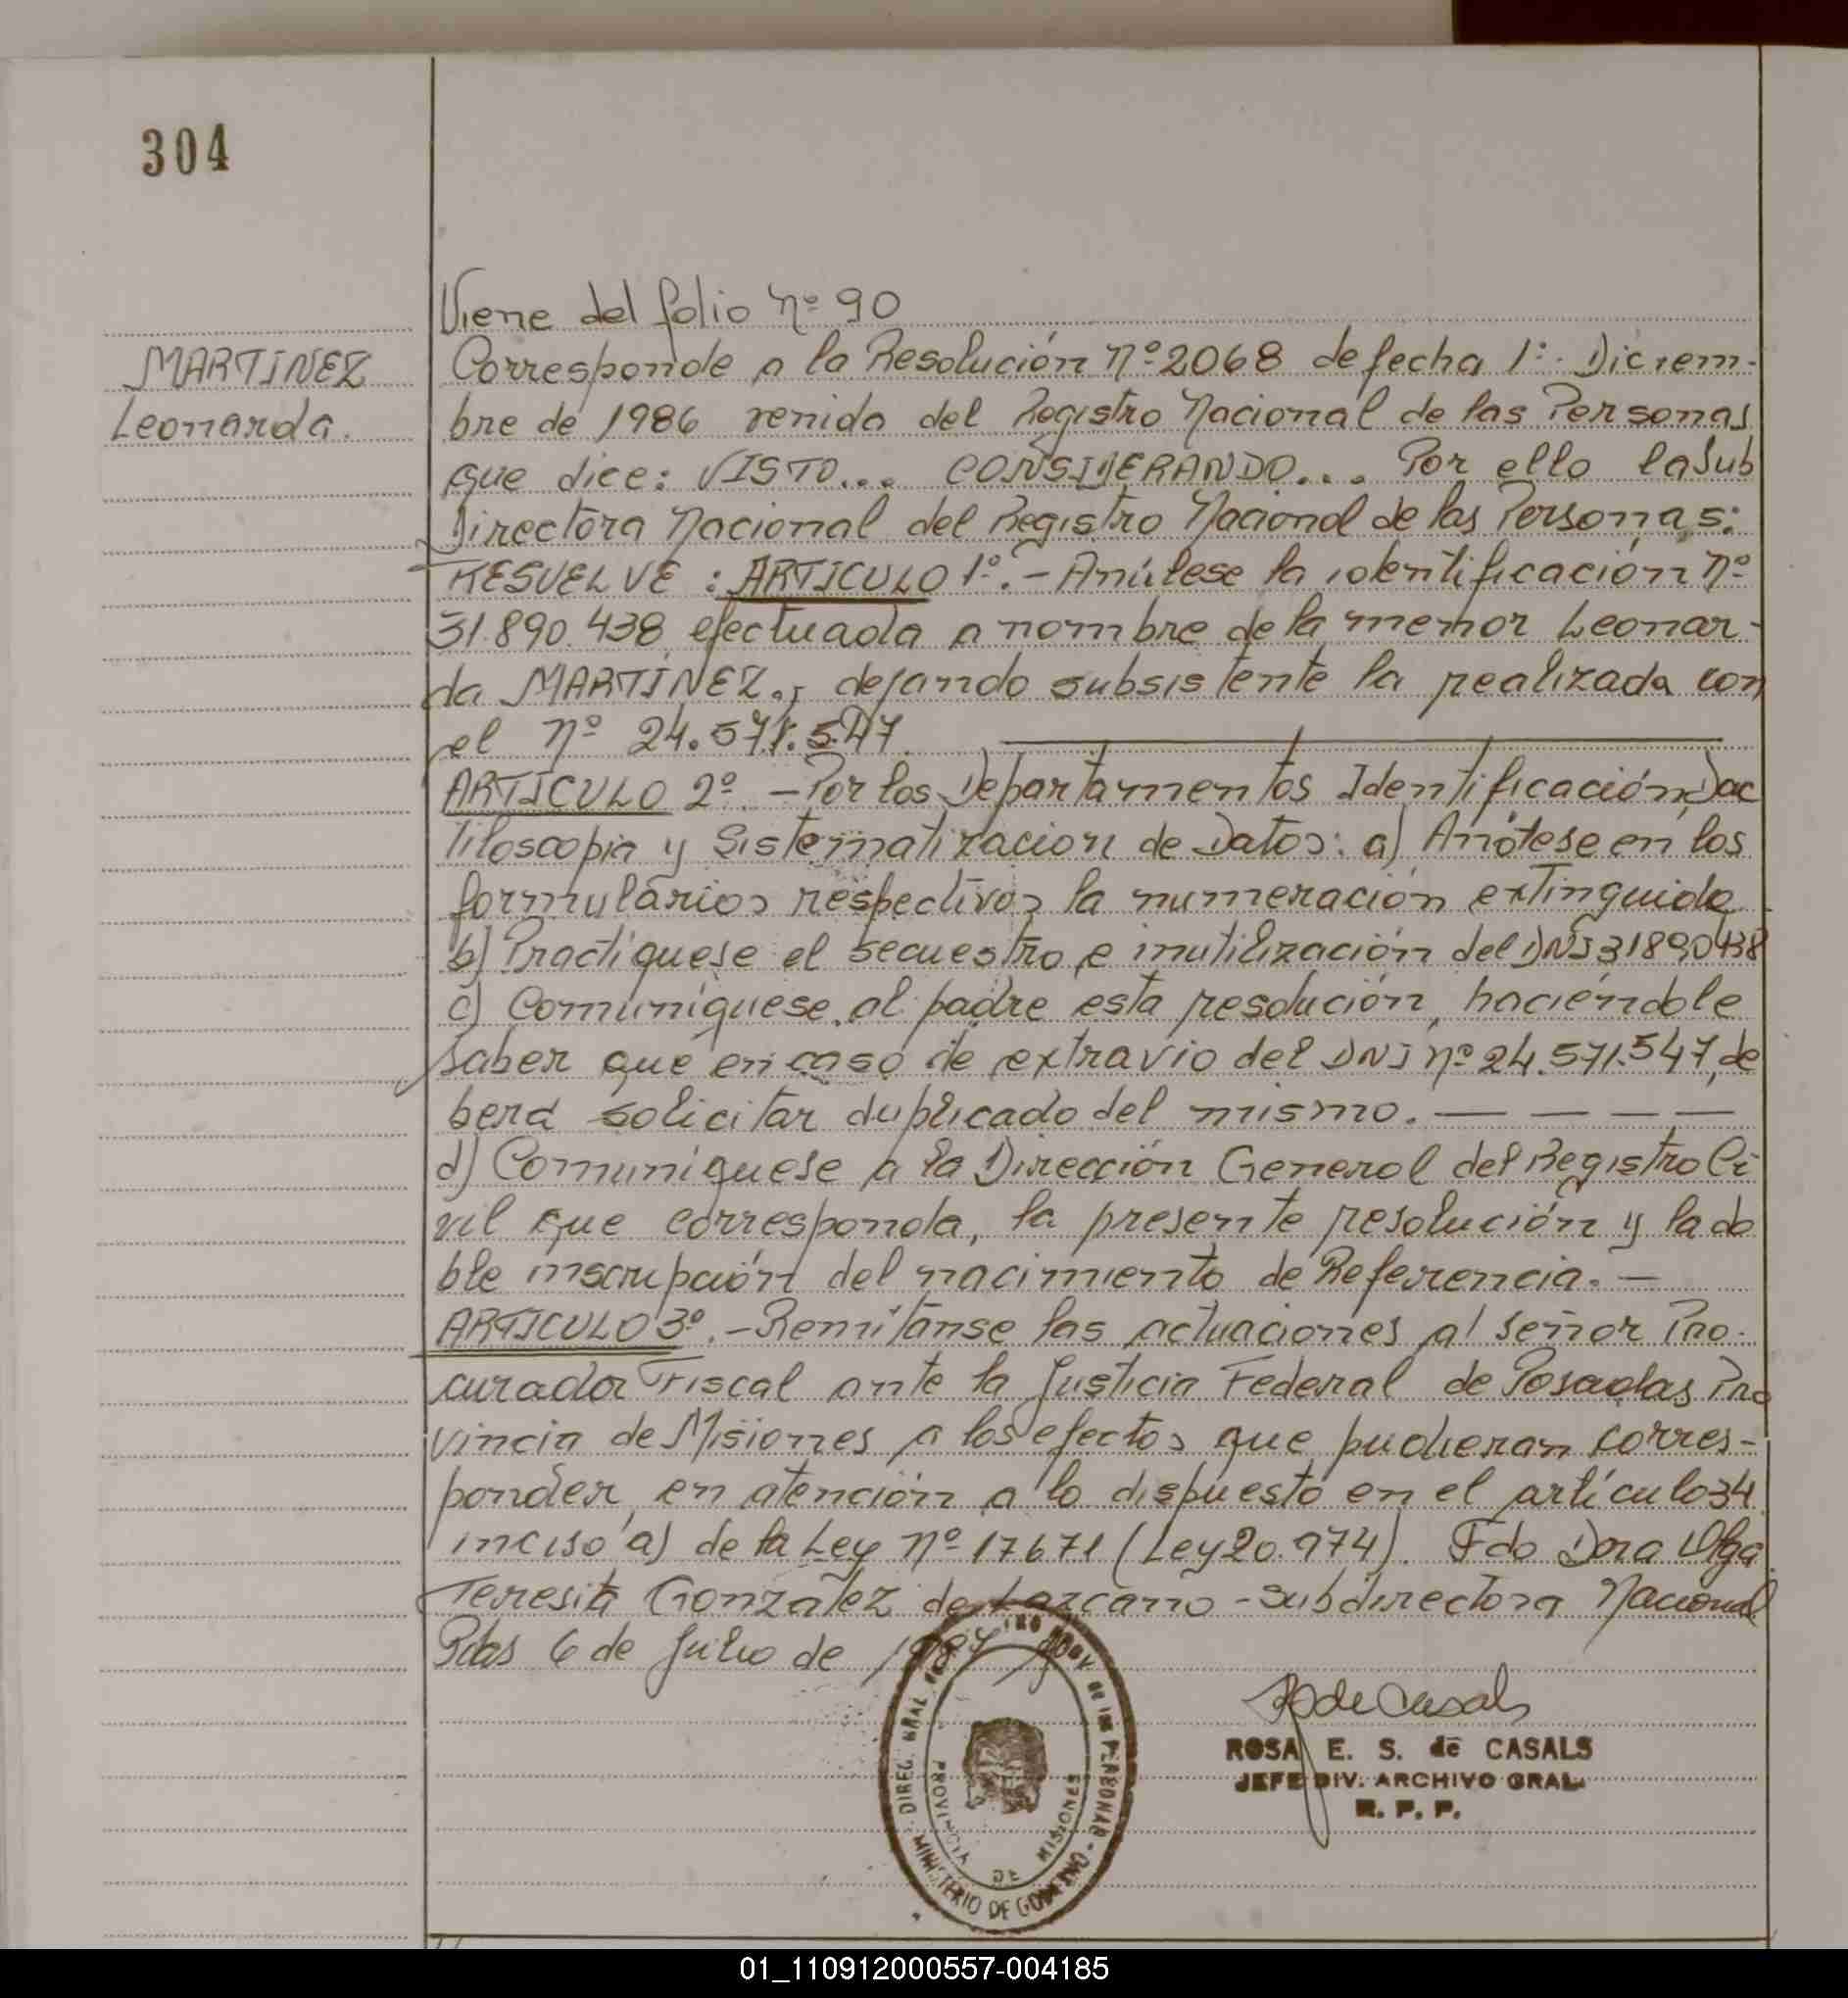 304
Viene del folio nº 90
MARTINEZ
Leonarda.
Corresponde a la Resolución Nº 2068 de fecha 1º. Diciem-
bre de 1986 venida del Registro Nacional de las Personas
que dice: VISTO... CONSIDERANDO... Por ello la Sub
Directora Nacional del Registro Nacional de las Personas:
RESUELVE : ARTICULO 1º.- Anúlese la identificación Nº
31.890.438 efectuada a nombre de la menor Leonar-
da MARTINEZ., dejando subsistente la realizada con
el Nº 24.571.547.
ARTICULO 2º.- Por los Departamentos Identificación, Dac
tiloscopia y Sistematizacion de Datos: a) Anótese en los
formularios respectivos la numeración extinguida
b) Practíquese el secuestro e inutilización del DNI 31890438
c) Comuníquese al padre esta resolución, haciéndole
saber que en caso de extravio del DNI nº 24.571.547, de
berá solicitar duplicado del mismo. — — — —
d) Comuníquese a la Dirección General del Registro Ci
vil que corresponda, la presente resolución y la do
ble inscripción del nacimiento de Referencia. —
ARTICULO 3º.- Remítanse las actuaciones al señor Pro-
curador Fiscal ante la Justicia Federal de Posadas Pro
vincia de Misiones a los efectos que pudieran corres-
ponder, en atención a lo dispuesto en el artículo 34
inciso a) de la Ley Nº 17671 (Ley 20.974). Fdo Dora Olga
Teresita Gonzalez de Lazcano - Subdirectora Nacional
Pdas 6 de Julio de 1987
DIREC. GRAL. DE LAS PERSONAS - MINISTERIO DE GOBIERNO
PROVINCIA DE MISIONES
R de Casals
ROSA E. S. de CASALS
JEFE DIV. ARCHIVO GRAL.
R. P. P.
01_110912000557-004185